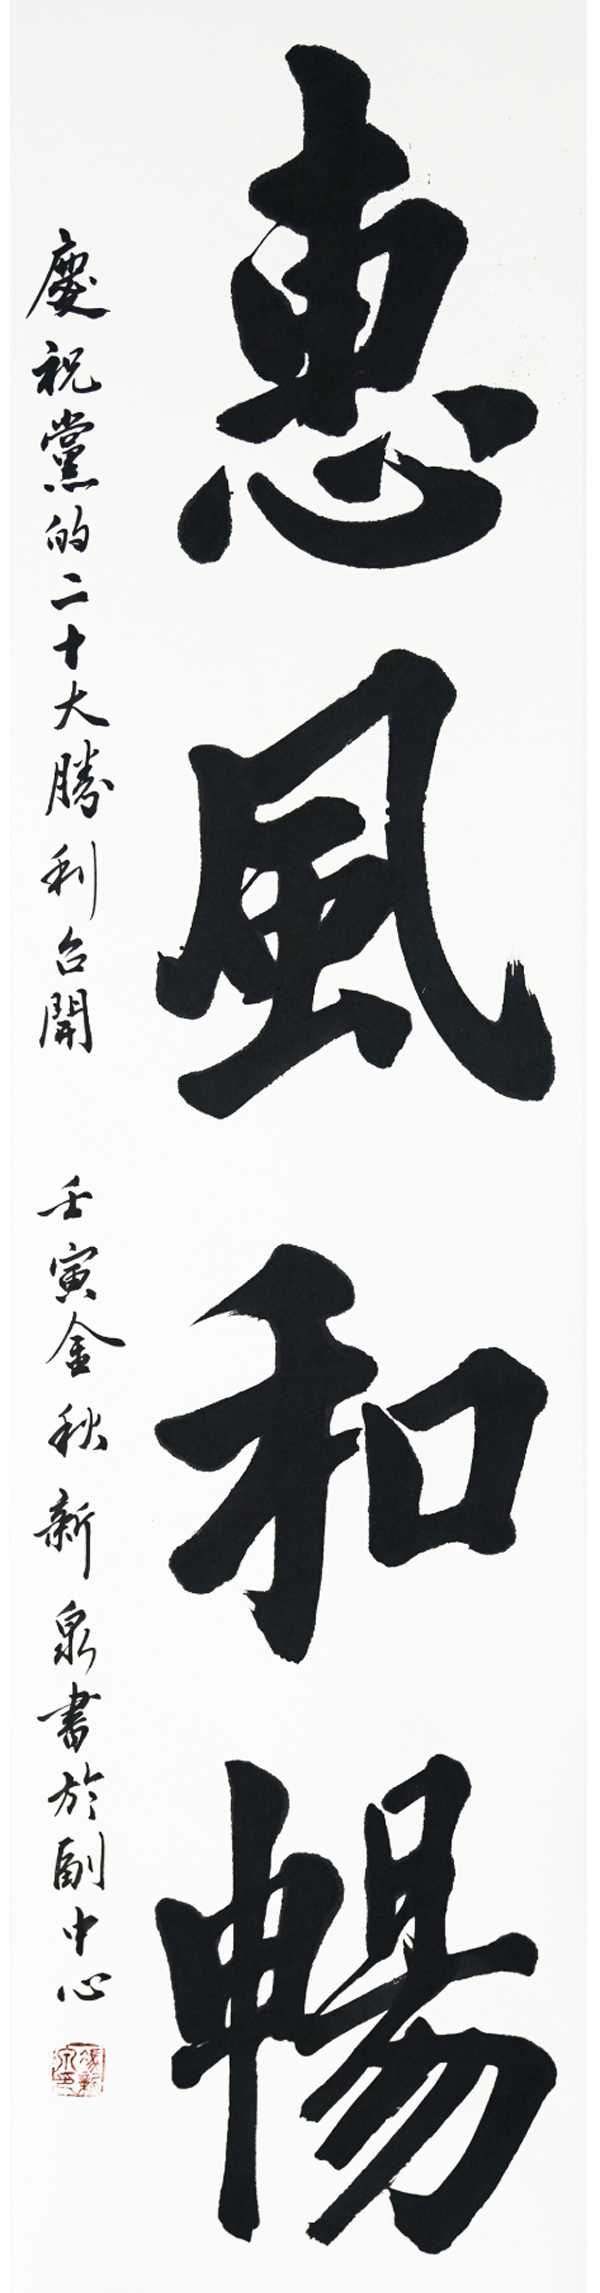 惠風和暢
慶祝黨的二十大勝利召開 壬寅金秋新泉書於副中心